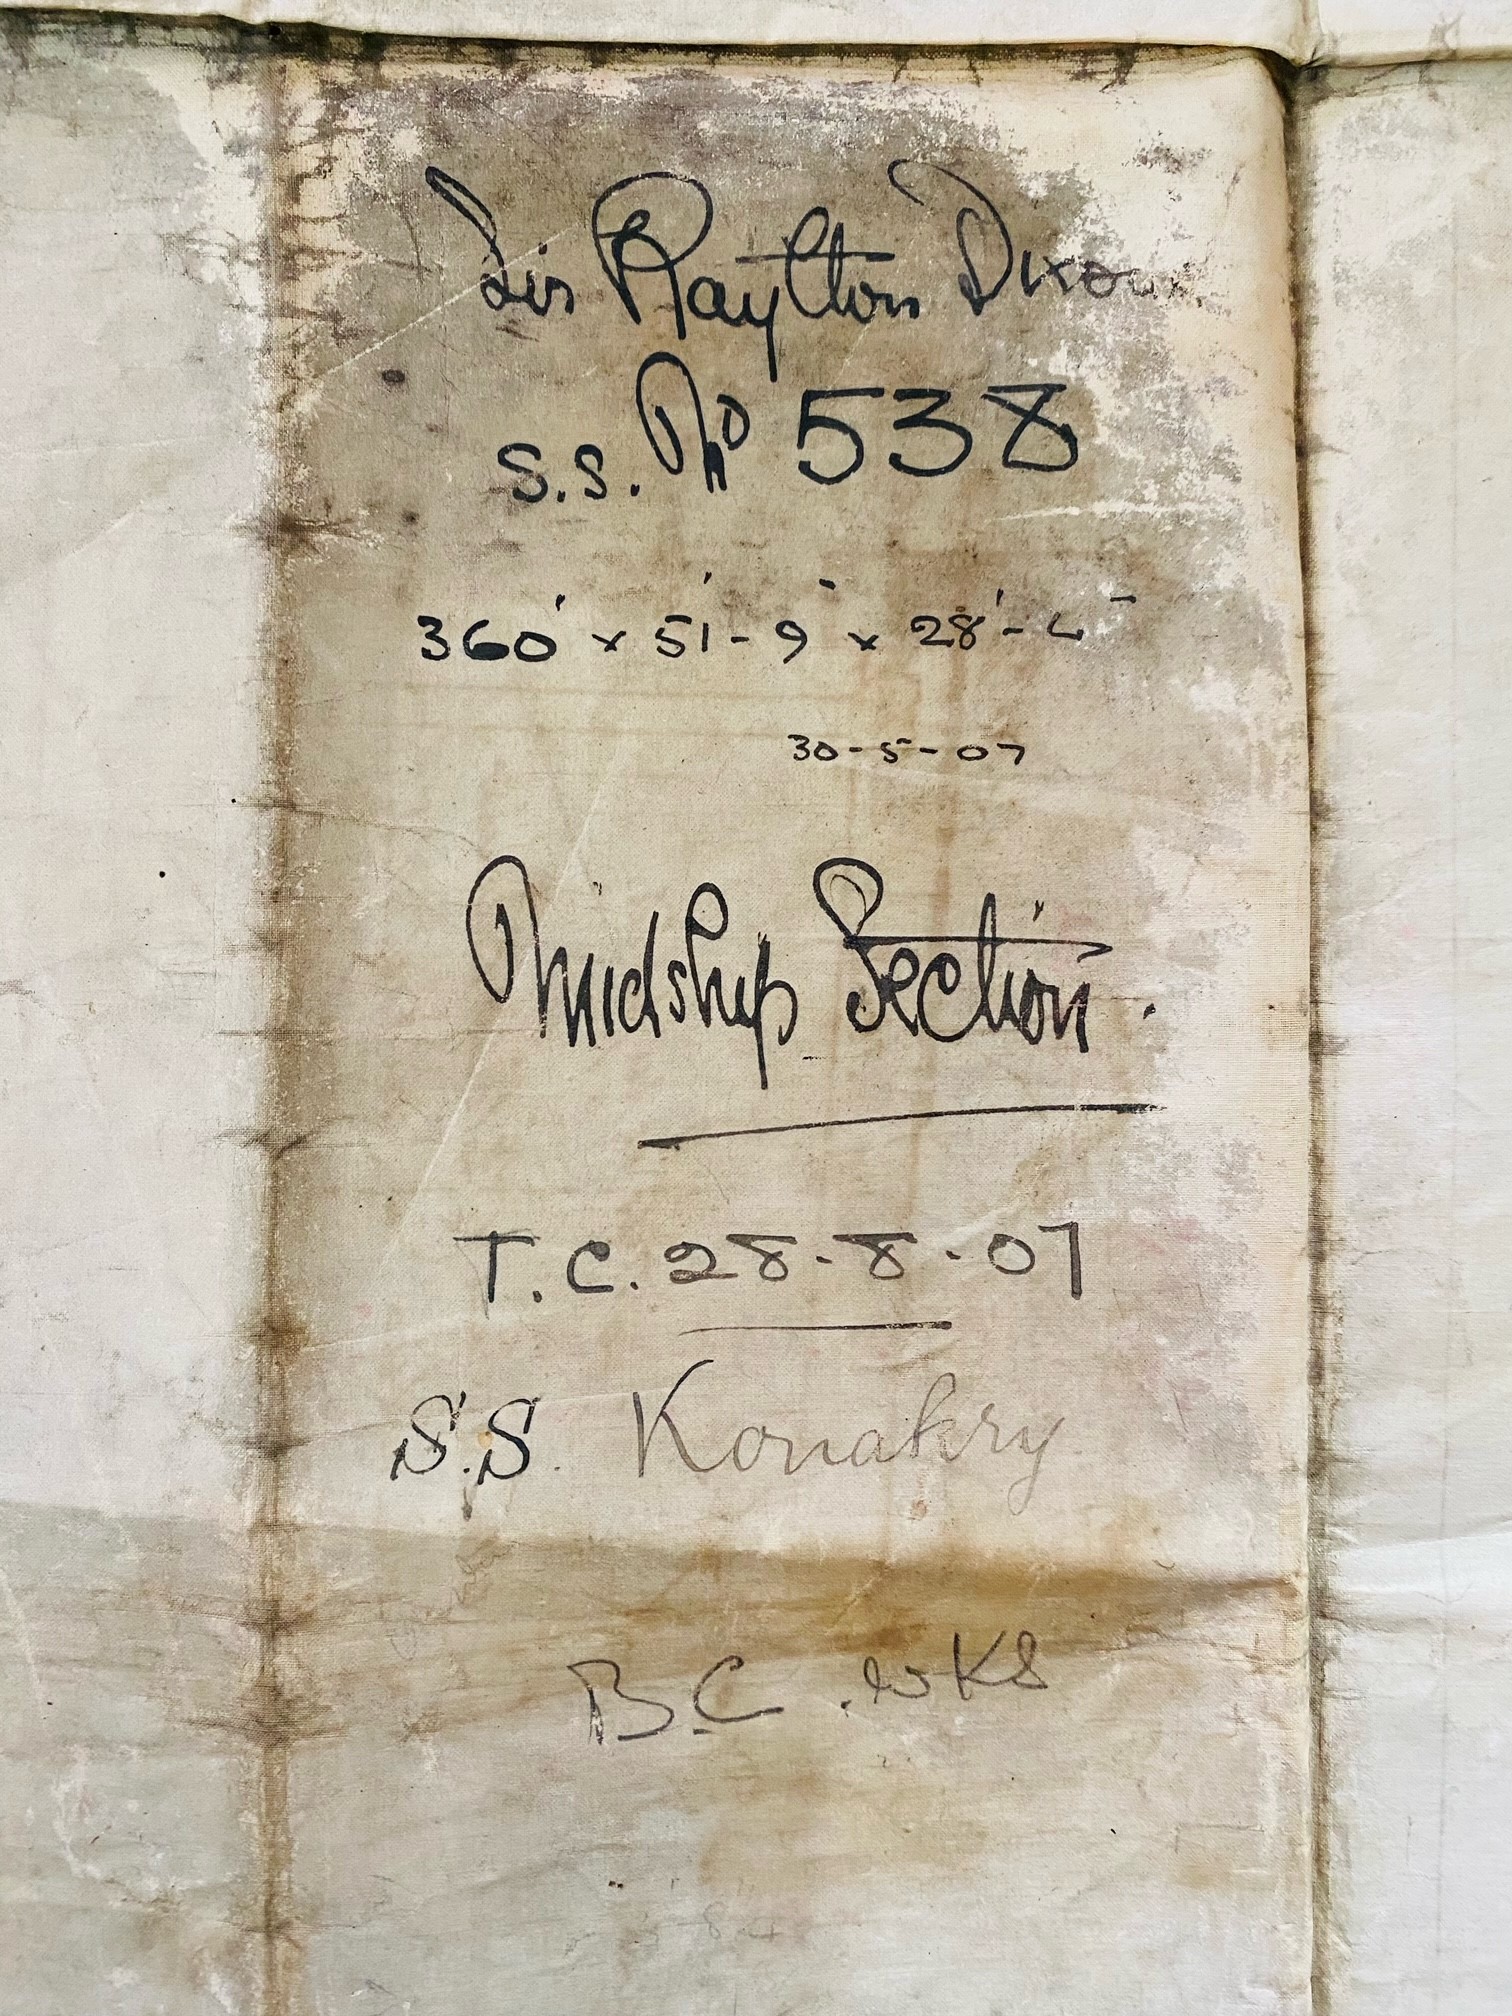 Sir Raylton Dixon
S.S. Nº 538
360' x 51'-9" x 28'-4"
30-5-07
Midship Section.
T.C. 28-8-07
S.S. Konakry
B.C. wks